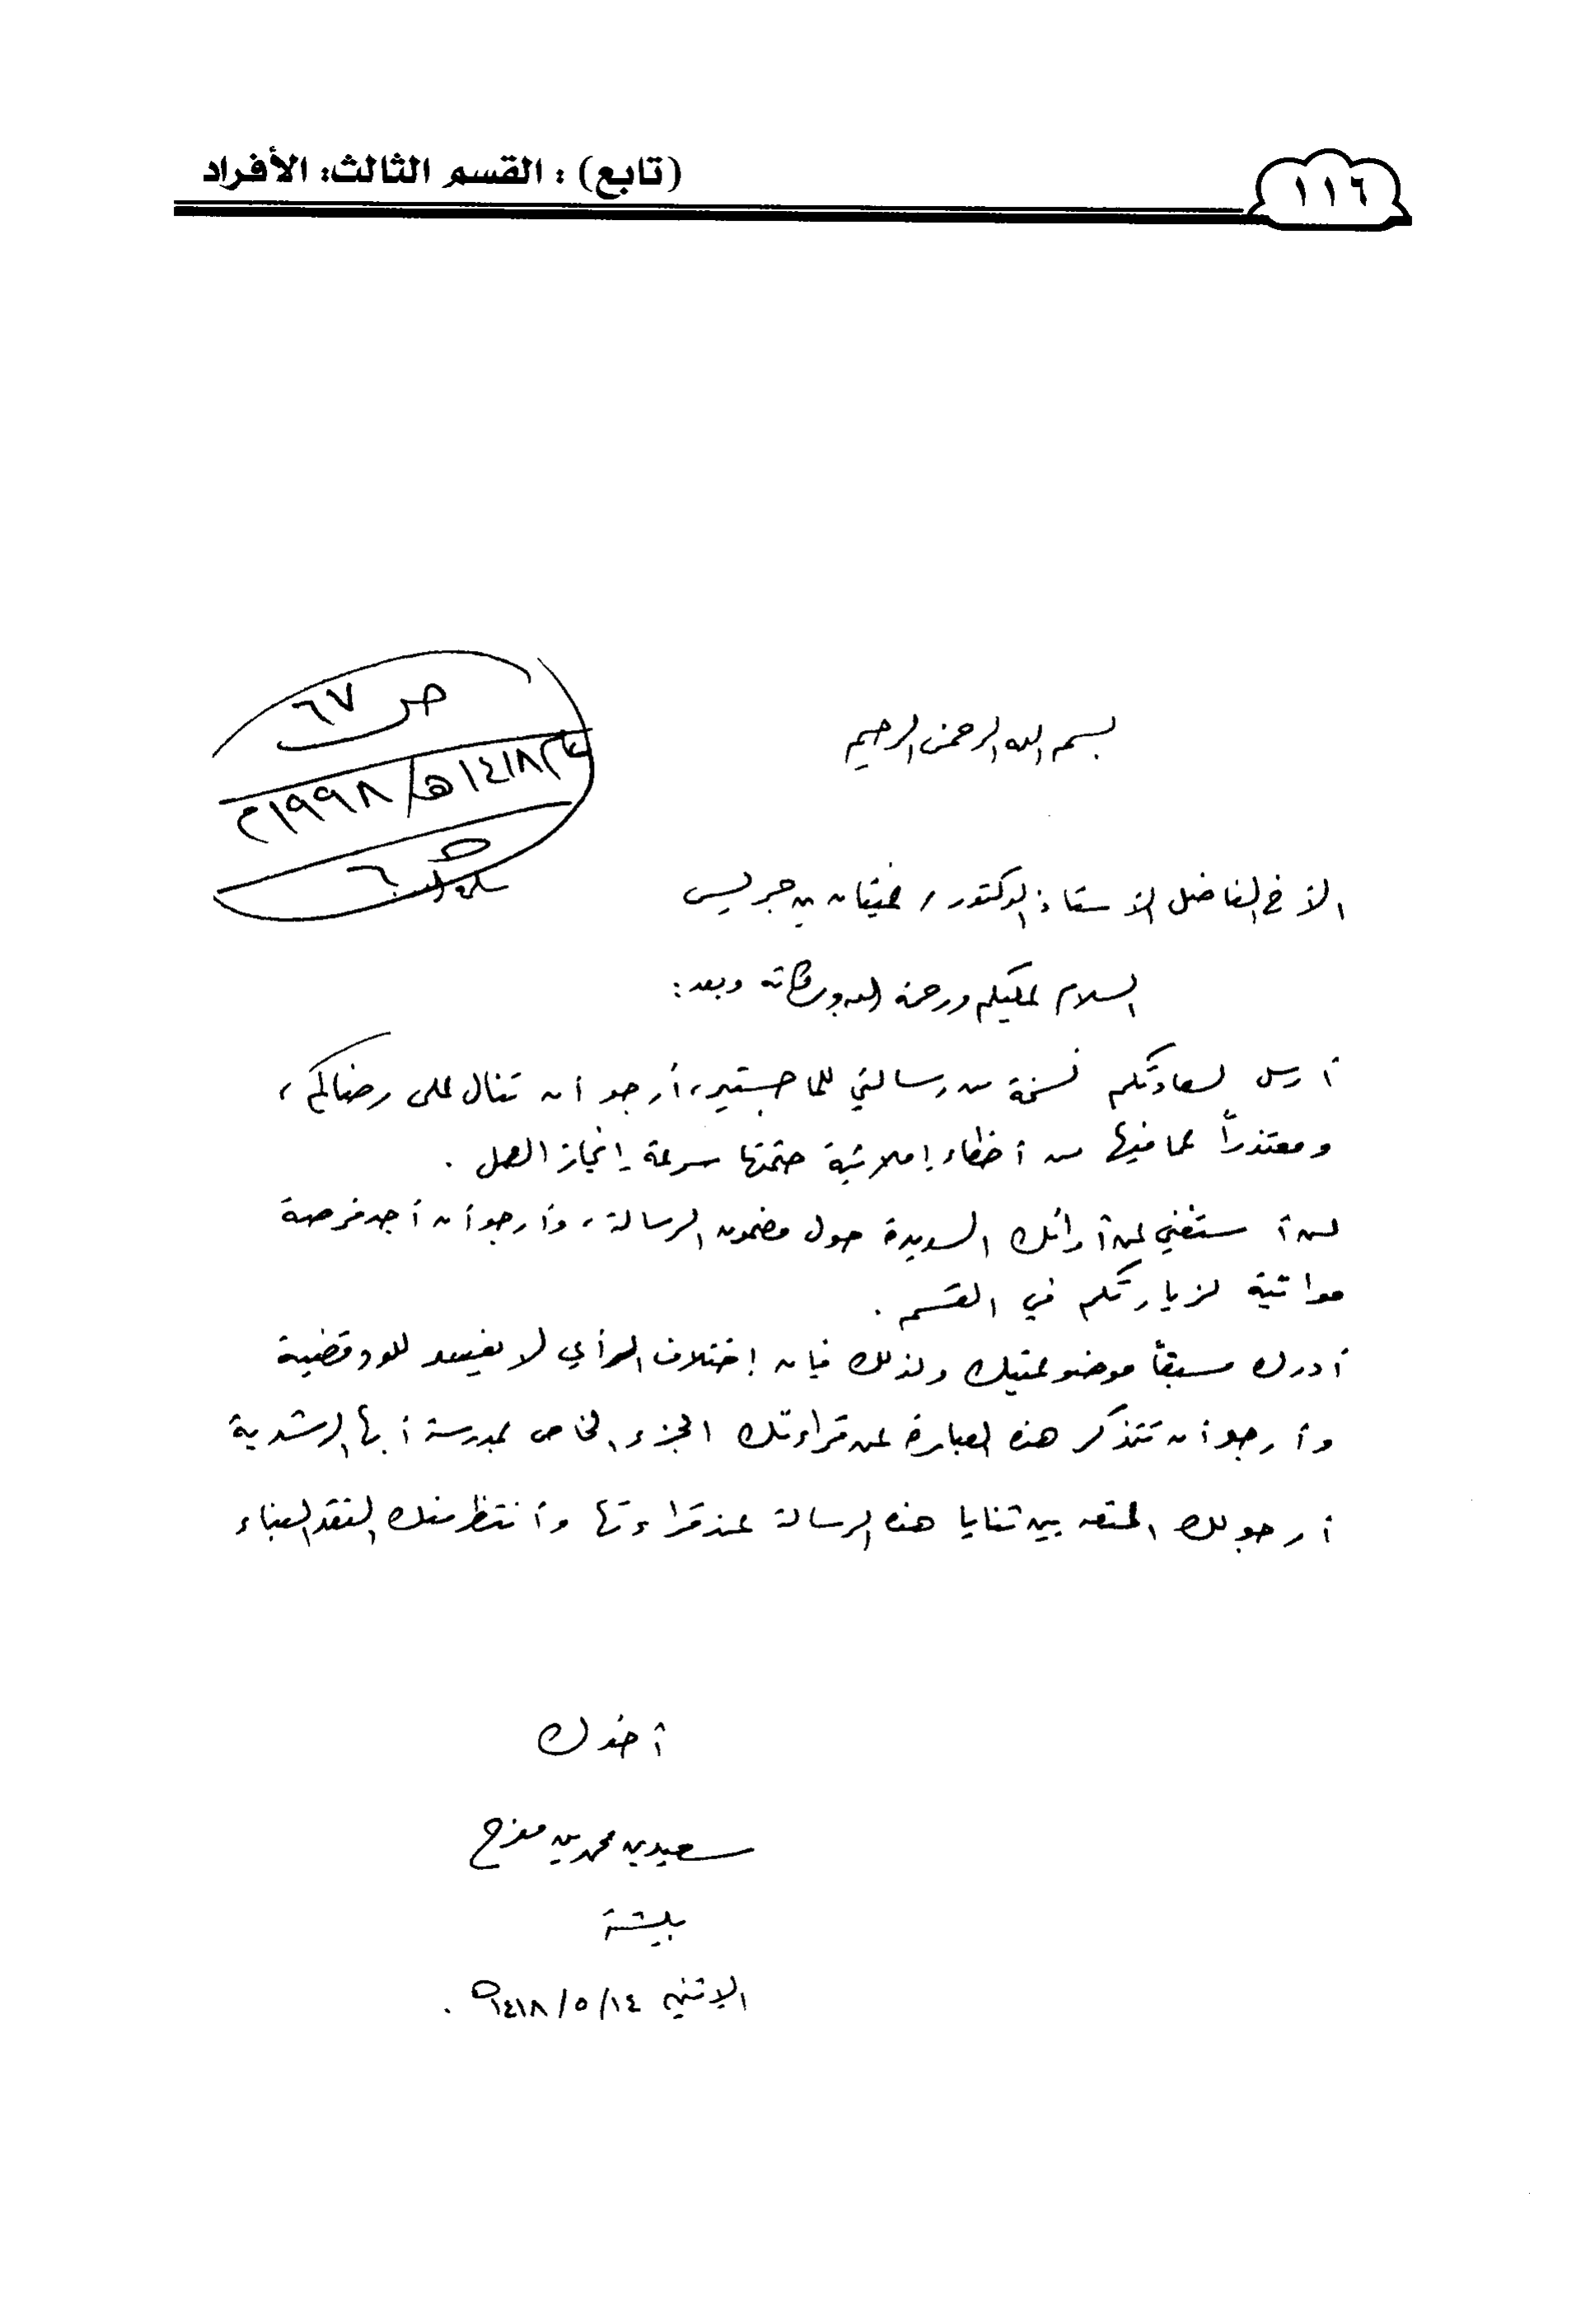 (تابع) : القسم الثالث: الأفراد
١١٦
ص ٦٧
١٤١٨هـ/ ١٩٩٨م
٦
بسم الله الرحمن الرحيم
الأخ الفاضل الأستاذ الدكتور / غيثان بن جريس
السلام عليكم ورحمة الله وبركاته وبعد:
أرسل لسعادتكم نسخة من رسالتي للماجستير، أرجو أن تنال على رضاكم،
ومعتذراً عما فيها من أخطاء إملائية حتمتها سرعة إنجاز العمل .
لن أستغني عن آرائك السديدة حول مضمون الرسالة، وأرجو أن أجد فرصة
مواتية لزيارتكم في القسم .
أدرك مسبقاً موضوعيتك ولذلك فإن إختلاف الرأي لا يفسد للود قضية
وأرجو أن تتذكر هذه العبارة عن قراءتك الجزء الخاص بمدرسة أبها الرشدية
أرجو لك المتعه بين ثنايا هذه الرسالة عند قراءتها وأنتظر منك النقد البناء
أخوك
سعيد بن محمد بن مفرح
بيشة
الإثنين ١٤/ ٥/ ١٤١٨هـ .